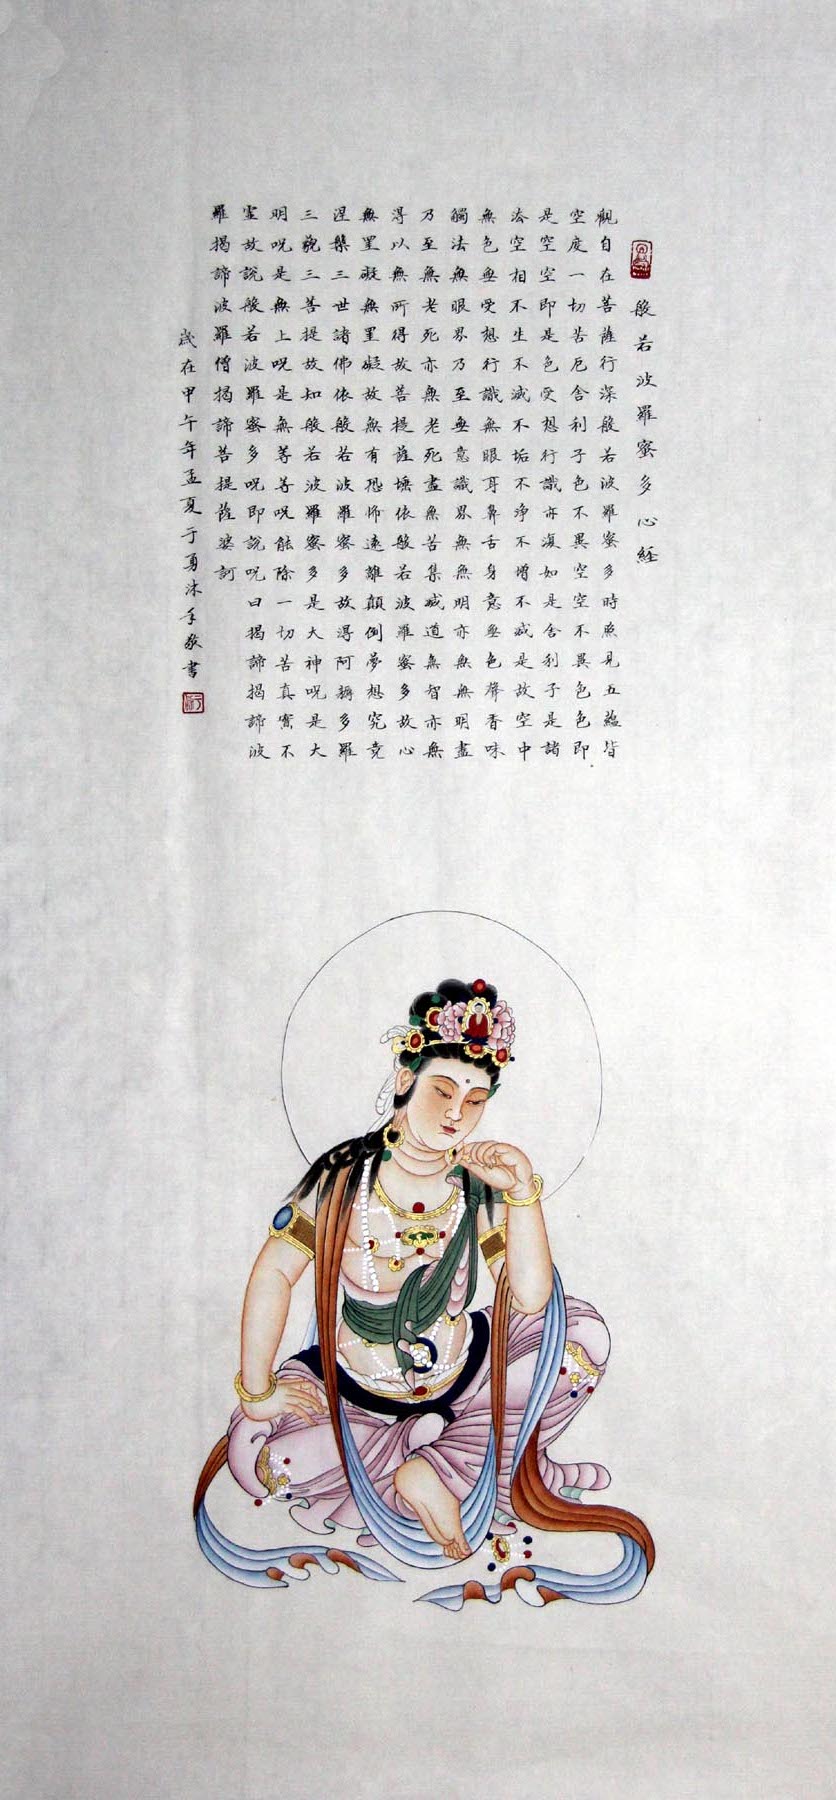 般若波羅蜜多心経
觀自在菩薩行深般若波羅蜜多時照見五蘊皆
空度一切苦厄舍利子色不異空空不異色色即
是空空即是色受想行識亦復如是舍利子是諸
法空相不生不滅不垢不淨不增不減是故空中
無色無受想行識無眼耳鼻舌身意無色聲香味
觸法無眼界乃至無意識界無無明亦無無明盡
乃至無老死亦無老死盡無苦集滅道無智亦無
得以無所得故菩提薩埵依般若波羅蜜多故心
無罣礙無罣礙故無有恐怖遠離顛倒夢想究竟
涅槃三世諸佛依般若波羅蜜多故得阿耨多羅
三藐三菩提故知般若波羅蜜多是大神呪是大
明呪是無上呪是無等等呪能除一切苦真實不
虛故說般若波羅蜜多呪即說呪曰揭諦揭諦波
羅揭諦波羅僧揭諦菩提薩婆訶
歲在甲午年孟夏于勇沐手敬書